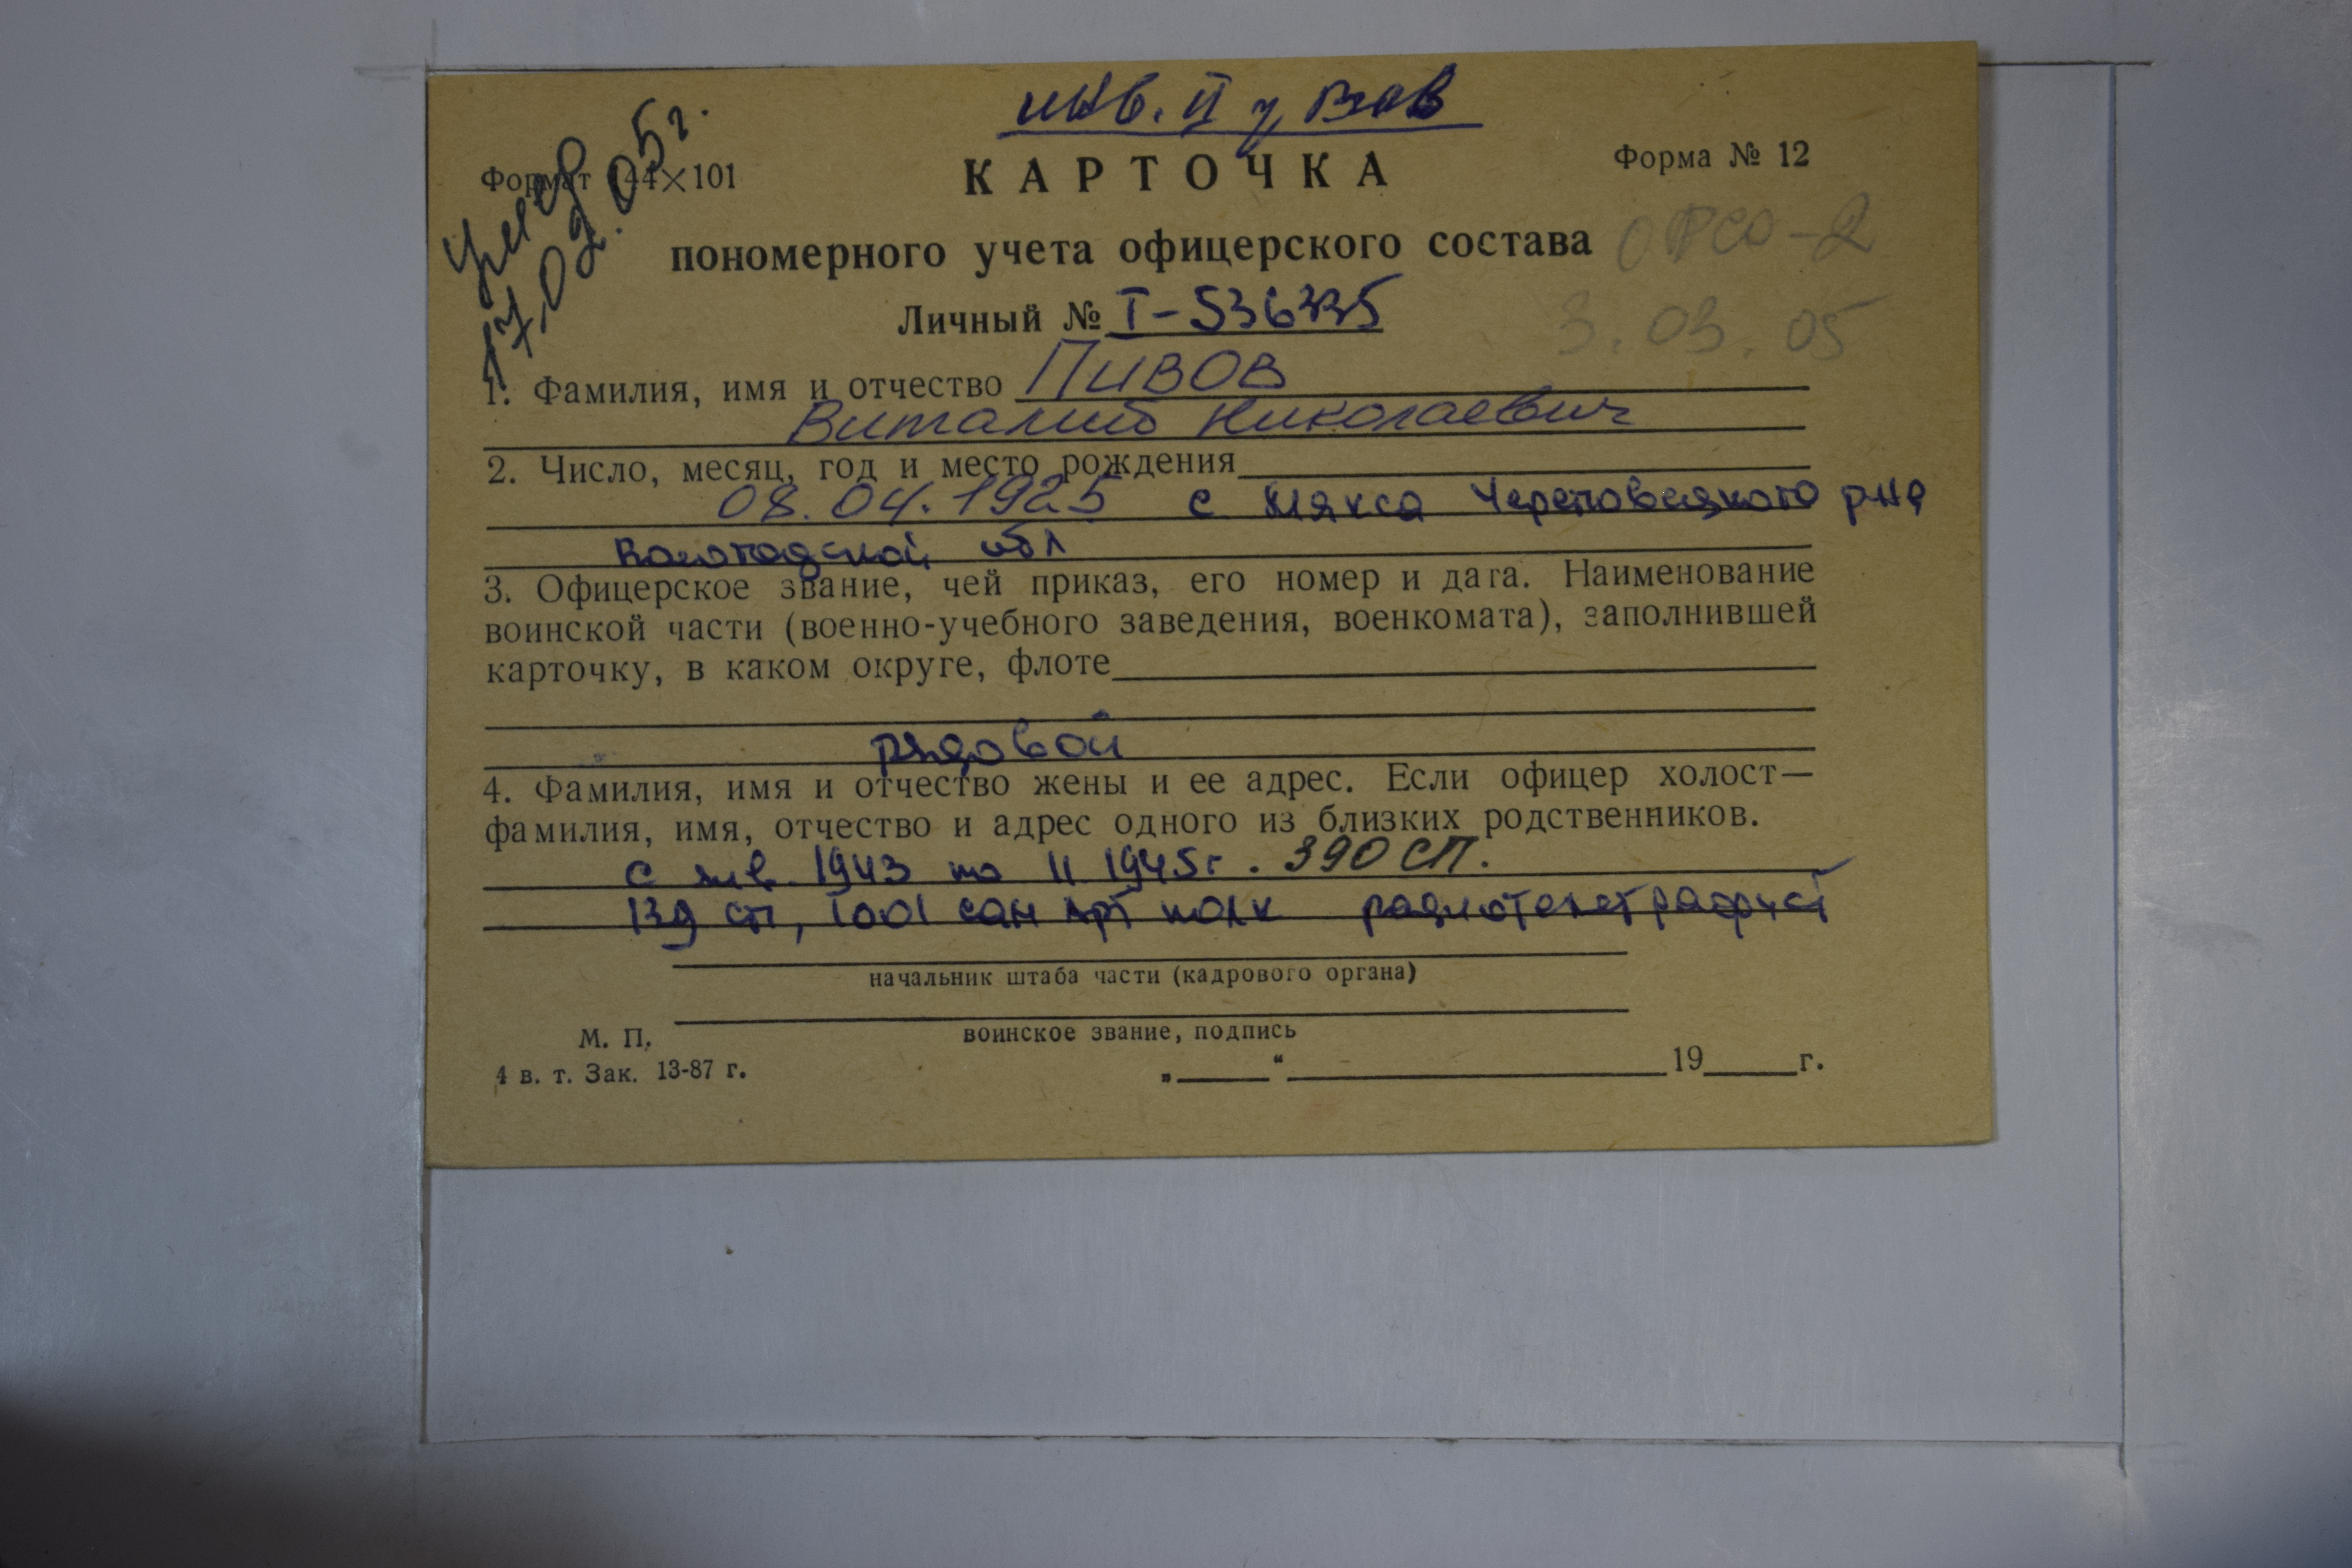 инв. II гр ВОВ
умер
17.02.05г.
Формат 144×101
КАРТОЧКА
Форма № 12
пономерного учета офицерского состава
Личный № I-536335
3.03.05
1. Фамилия, имя и отчество Пивов
Виталий Николаевич
2. Число, месяц, год и место рождения
08.04.1925 с Мякса Череповецкого р-на
Вологодской обл
3. Офицерское звание, чей приказ, его номер и дата. Наименование
воинской части (военно-учебного заведения, военкомата), заполнившей
карточку, в каком округе, флоте
рядовой
4. Фамилия, имя и отчество жены и ее адрес. Если офицер холост—
фамилия, имя, отчество и адрес одного из близких родственников.
с янв. 1943 по 11 1945г. 390 СП.
139 сп, 1001 сам арт полк радиотелеграфист
начальник штаба части (кадрового органа)
воинское звание, подпись
М. П.
4 в. т. Зак. 13-87 г.
„ “ 19 г.